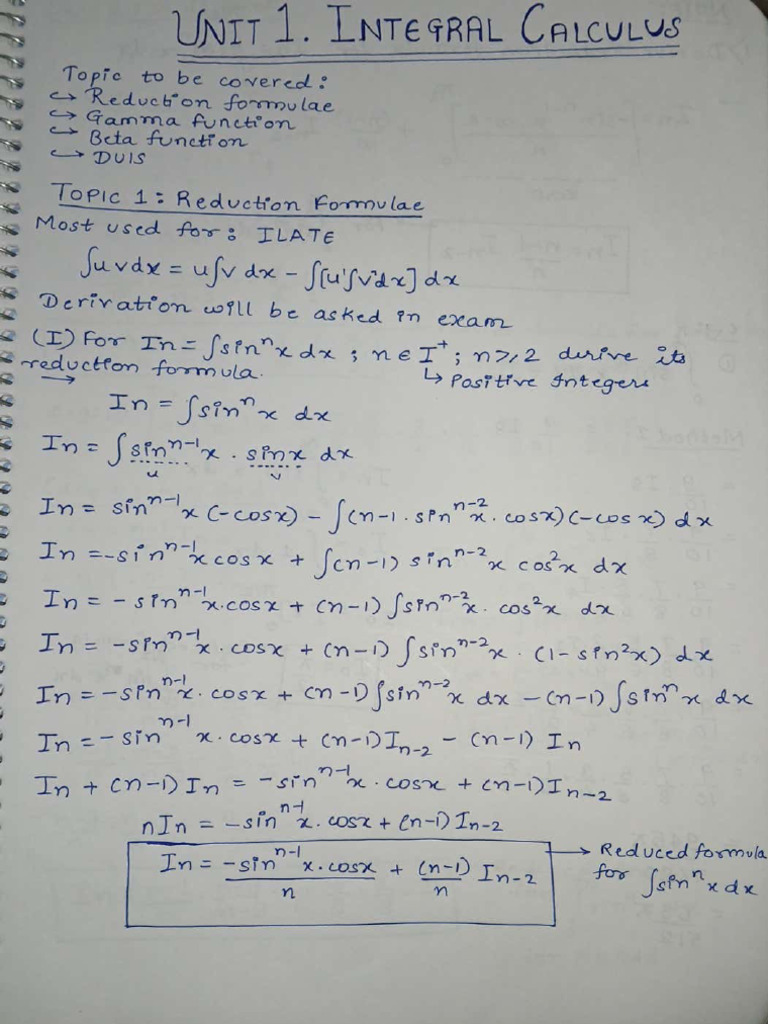 UNIT 1. INTEGRAL CALCULUS
Topic to be covered:
↪ Reduction formulae
↪ Gamma function
↪ Beta function
↪ DUIS
TOPIC 1: Reduction Formulae
Most used for: ILATE
∫uvdx = u∫v dx - ∫[u'∫v dx] dx
Derivation will be asked in exam
(I) For In = ∫sinⁿx dx ; n ∈ I⁺ ; n ≥ 2 derive its
reduction formula. ↳ Positive Integers
→
In = ∫sinⁿx dx
In = ∫sinⁿ⁻¹x . sinx dx
u v
In = sinⁿ⁻¹x (-cosx) - ∫(n-1 . sinⁿ⁻²x . cosx)(-cosx) dx
In = -sinⁿ⁻¹x cosx + ∫(n-1) sinⁿ⁻²x cos²x dx
In = - sinⁿ⁻¹x.cosx + (n-1) ∫sinⁿ⁻²x. cos²x dx
In = -sinⁿ⁻¹x. cosx + (n-1) ∫sinⁿ⁻²x . (1- sin²x) dx
In = -sinⁿ⁻¹x. cosx + (n-1)∫sinⁿ⁻²x dx - (n-1) ∫sinⁿx dx
In = - sinⁿ⁻¹x. cosx + (n-1) Iₙ₋₂ - (n-1) In
In + (n-1) In = -sinⁿ⁻¹x. cosx + (n-1) Iₙ₋₂
nIn = -sinⁿ⁻¹x. cosx + (n-1) Iₙ₋₂
In = -sinⁿ⁻¹x.cosx/n + (n-1)/n Iₙ₋₂ → Reduced formula
for ∫sinⁿx dx